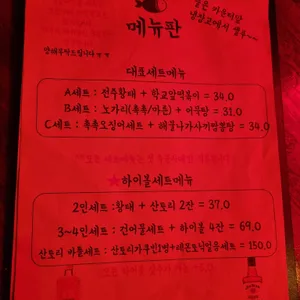 메뉴판
대표세트메뉴
A세트 : 전주황태 + 학교앞떡볶이 = 34.0
B세트 : 노가리(촉촉/마른) + 어묵탕 = 31.0
C세트 : 촉촉오징어세트 + 해물나가사끼짬뽕탕 = 34.0
★하이볼세트메뉴
2인세트 : 황태 + 산토리 2잔 = 37.0
3~4인세트 : 건어물세트 + 하이볼 4잔 = 69.0
산토리 바틀세트 : 산토리가쿠빈1병+레몬토닉얼음세트 = 150.0